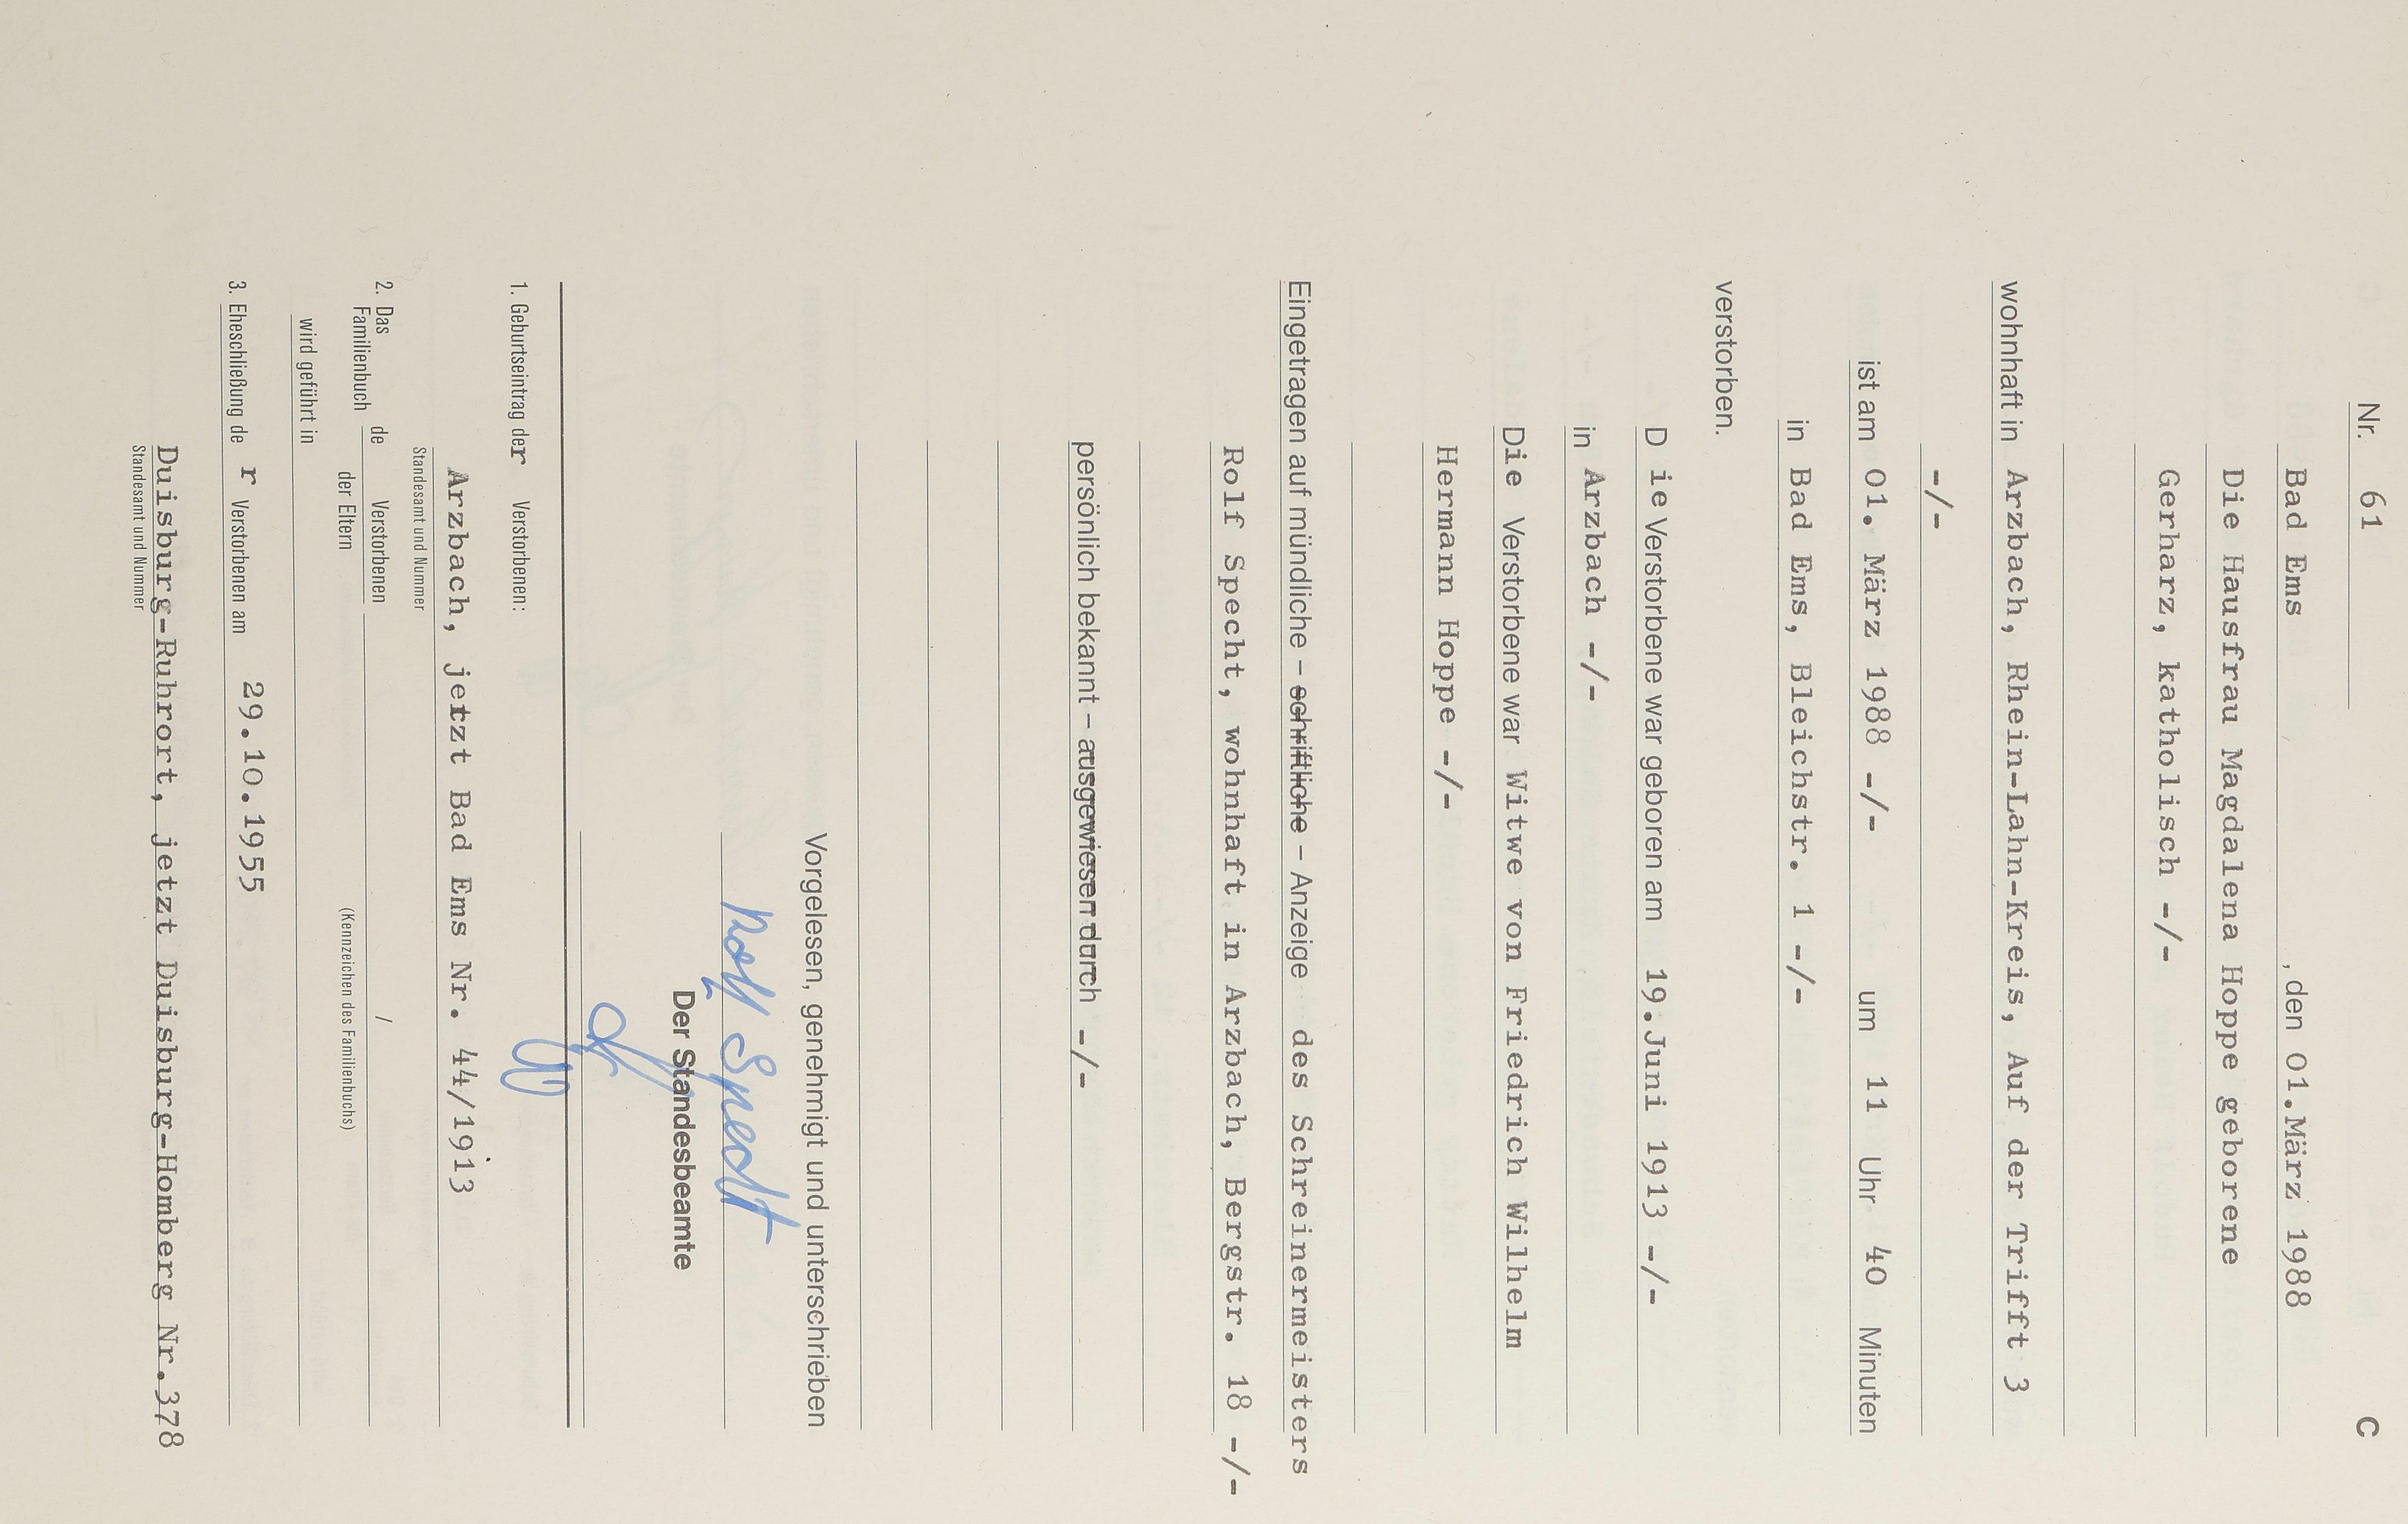 Nr. 61 C
Bad Ems , den 01.März 1988
Die Hausfrau Magdalena Hoppe geborene
Gerharz, katholisch -/-
wohnhaft in Arzbach, Rhein-Lahn-Kreis, Auf der Trifft 3
-/-
ist am 01. März 1988 -/- um 11 Uhr 40 Minuten
in Bad Ems, Bleichstr. 1 -/-
verstorben.
D ie Verstorbene war geboren am 19.Juni 1913 -/-
in Arzbach -/-
Die Verstorbene war Witwe von Friedrich Wilhelm
Hermann Hoppe -/-
Eingetragen auf mündliche – schriftliche – Anzeige des Schreinermeisters
Rolf Specht, wohnhaft in Arzbach, Bergstr. 18 -/-
persönlich bekannt – ausgewiesen durch -/-
Vorgelesen, genehmigt und unterschrieben
Rolf Specht
Der Standesbeamte
1. Geburtseintrag der Verstorbenen:
Arzbach, jetzt Bad Ems Nr. 44/1913
Standesamt und Nummer
2. Das Familienbuch de Verstorbenen /
der Eltern (Kennzeichen des Familienbuchs)
wird geführt in
3. Eheschließung de r Verstorbenen am 29.10.1955
Duisburg-Ruhrort, jetzt Duisburg-Homberg Nr.378
Standesamt und Nummer